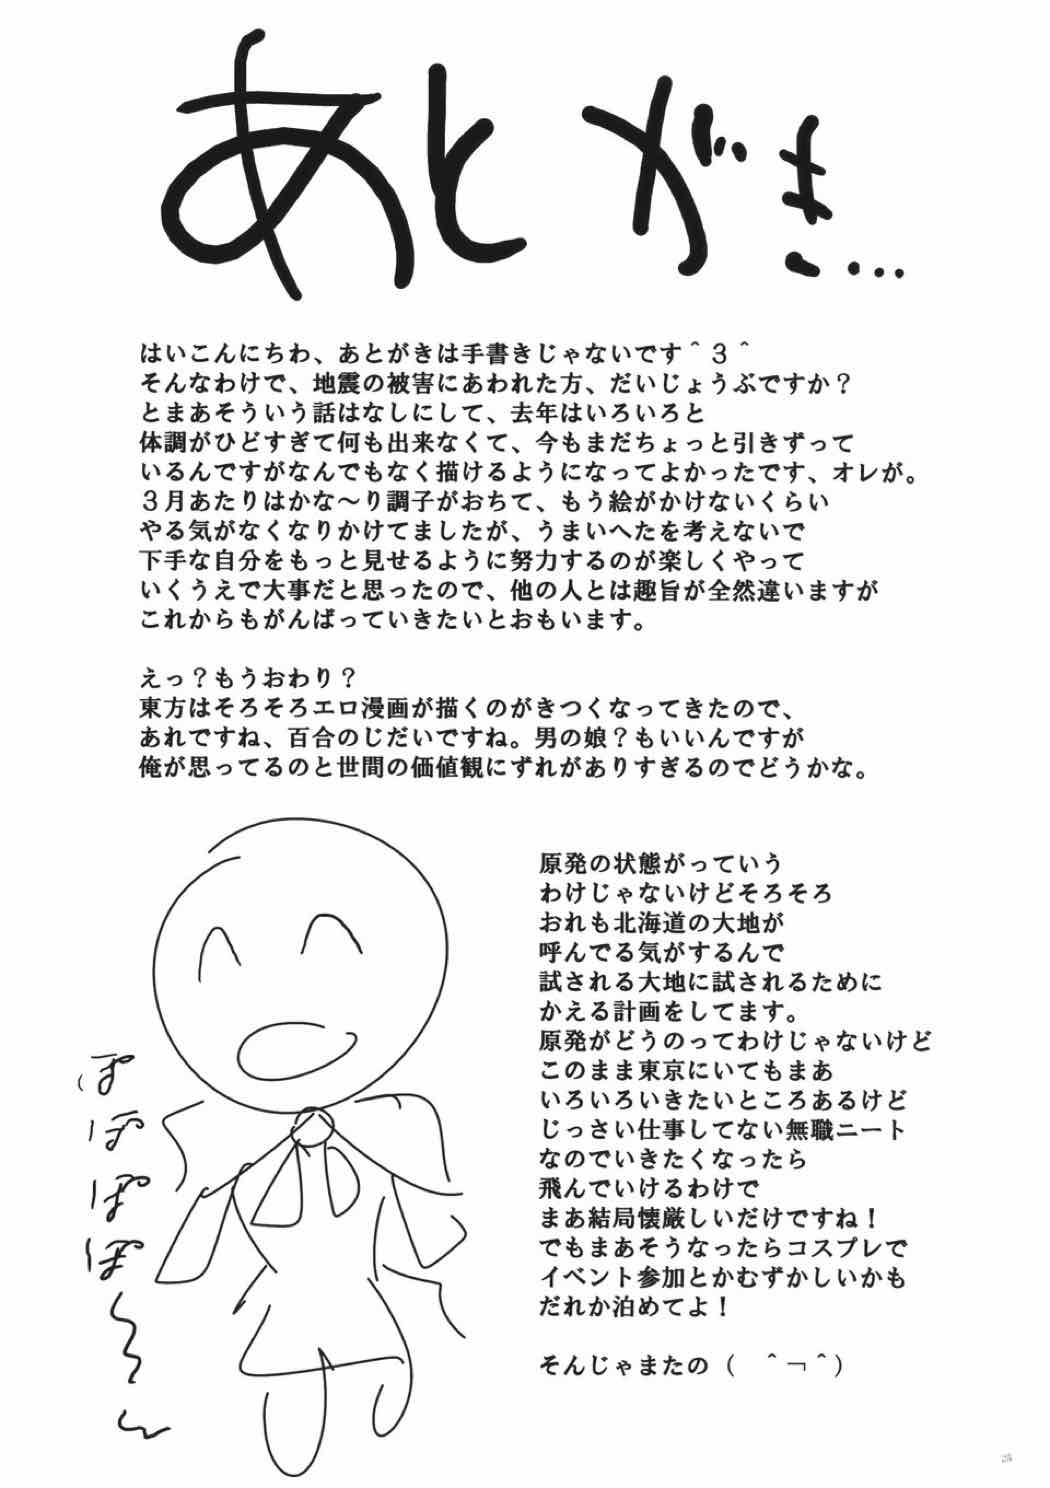 あとがき…
はいこんにちわ、あとがきは手書きじゃないです＾３＾
そんなわけで、地震の被害にあわれた方、だいじょうぶですか？
とまあそういう話はなしにして、去年はいろいろと
体調がひどすぎて何も出来なくて、今もまだちょっと引きずって
いるんですがなんでもなく描けるようになってよかったです、オレが。
３月あたりはかな～り調子がおちて、もう絵がかけないくらい
やる気がなくなりかけてましたが、うまいへたを考えないで
下手な自分をもっと見せるように努力するのが楽しくやって
いくうえで大事だと思ったので、他の人とは趣旨が全然違いますが
これからもがんばっていきたいとおもいます。
えっ？もうおわり？
東方はそろそろエロ漫画が描くのがきつくなってきたので、
あれですね、百合のじだいですね。男の娘？もいいんですが
俺が思ってるのと世間の価値観にずれがありすぎるのでどうかな。
原発の状態がっていう
わけじゃないけどそろそろ
おれも北海道の大地が
呼んでる気がするんで
試される大地に試されるために
かえる計画をしてます。
原発がどうのってわけじゃないけど
このまま東京にいてもまあ
いろいろいきたいところあるけど
じっさい仕事してない無職ニート
なのでいきたくなったら
飛んでいけるわけで
まあ結局懐厳しいだけですね！
でもまあそうなったらコスプレで
イベント参加とかむずかしいかも
だれか泊めてよ！
そんじゃまたの（　＾￢＾）
ぽぽぽぽ～ん